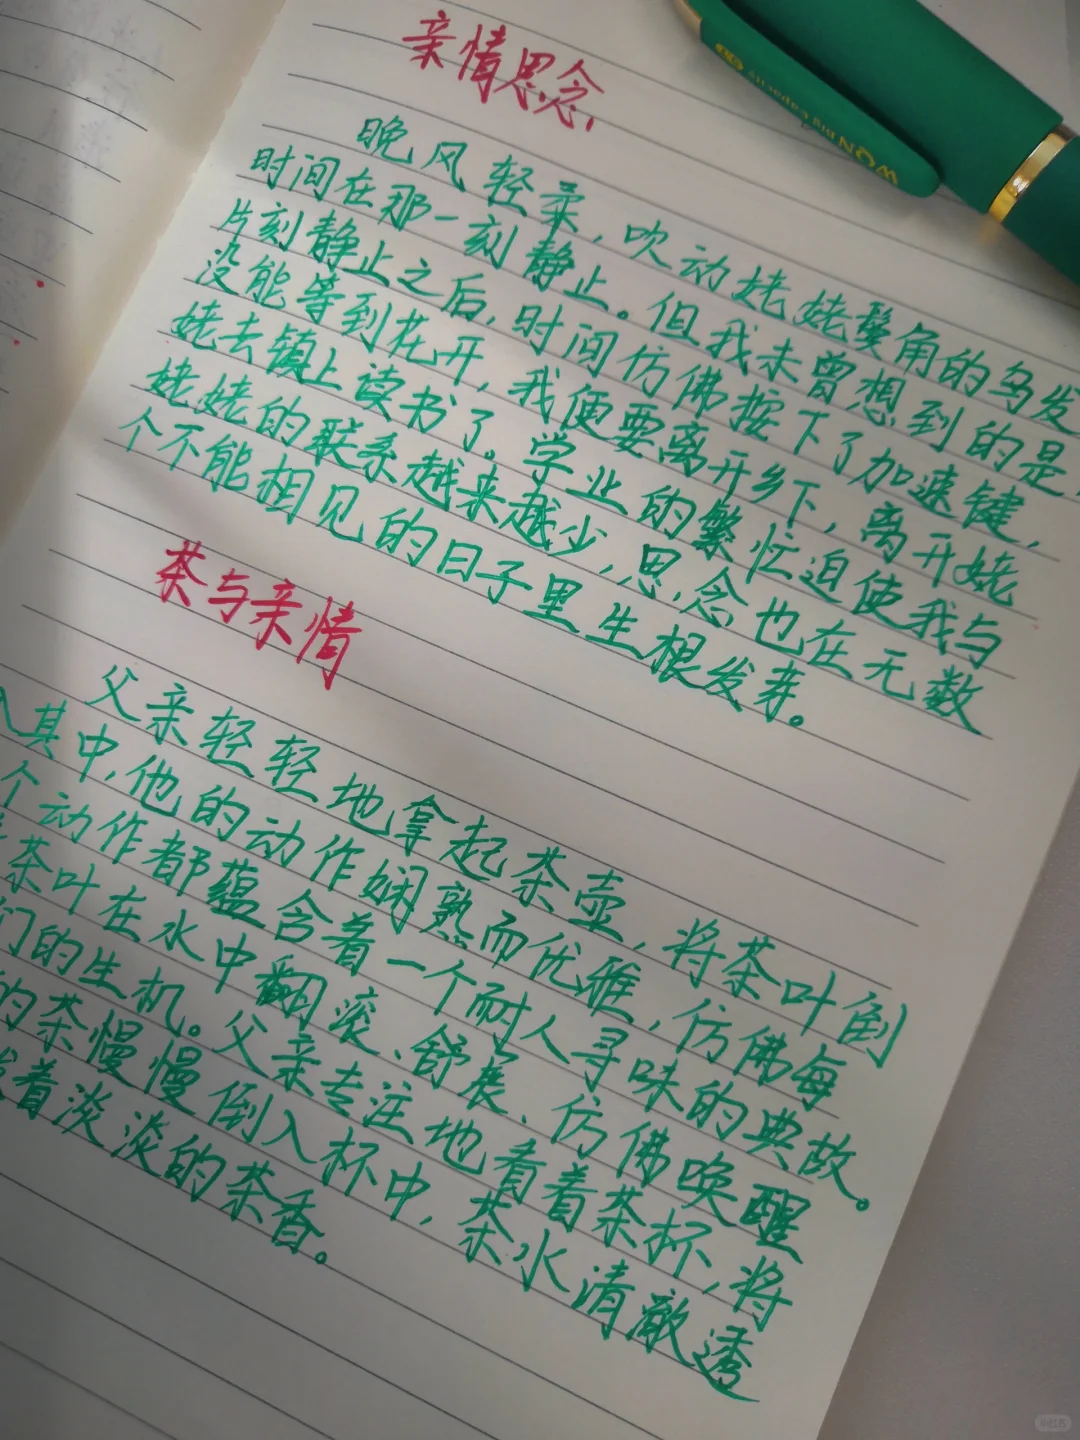 亲情思念
晚风轻柔，吹动姥姥鬓角的乌发
时间在那一刻静止。但我未曾想到的是，
片刻静止之后，时间仿佛按下了加速键，
没能等到花开，我便要离开乡下，离开姥
姥去镇上读书了。学业的繁忙迫使我与
姥姥的联系越来越少，思念也在无数
个不能相见的日子里生根发芽。
茶与亲情
父亲轻轻地拿起茶壶，将茶叶倒
入其中，他的动作娴熟而优雅，仿佛每
个动作都蕴含着一个耐人寻味的典故。
茶叶在水中翻滚、舒展、仿佛唤醒
们的生机。父亲专注地看着茶杯，将
的茶慢慢倒入杯中，茶水清澈透
着淡淡的茶香。